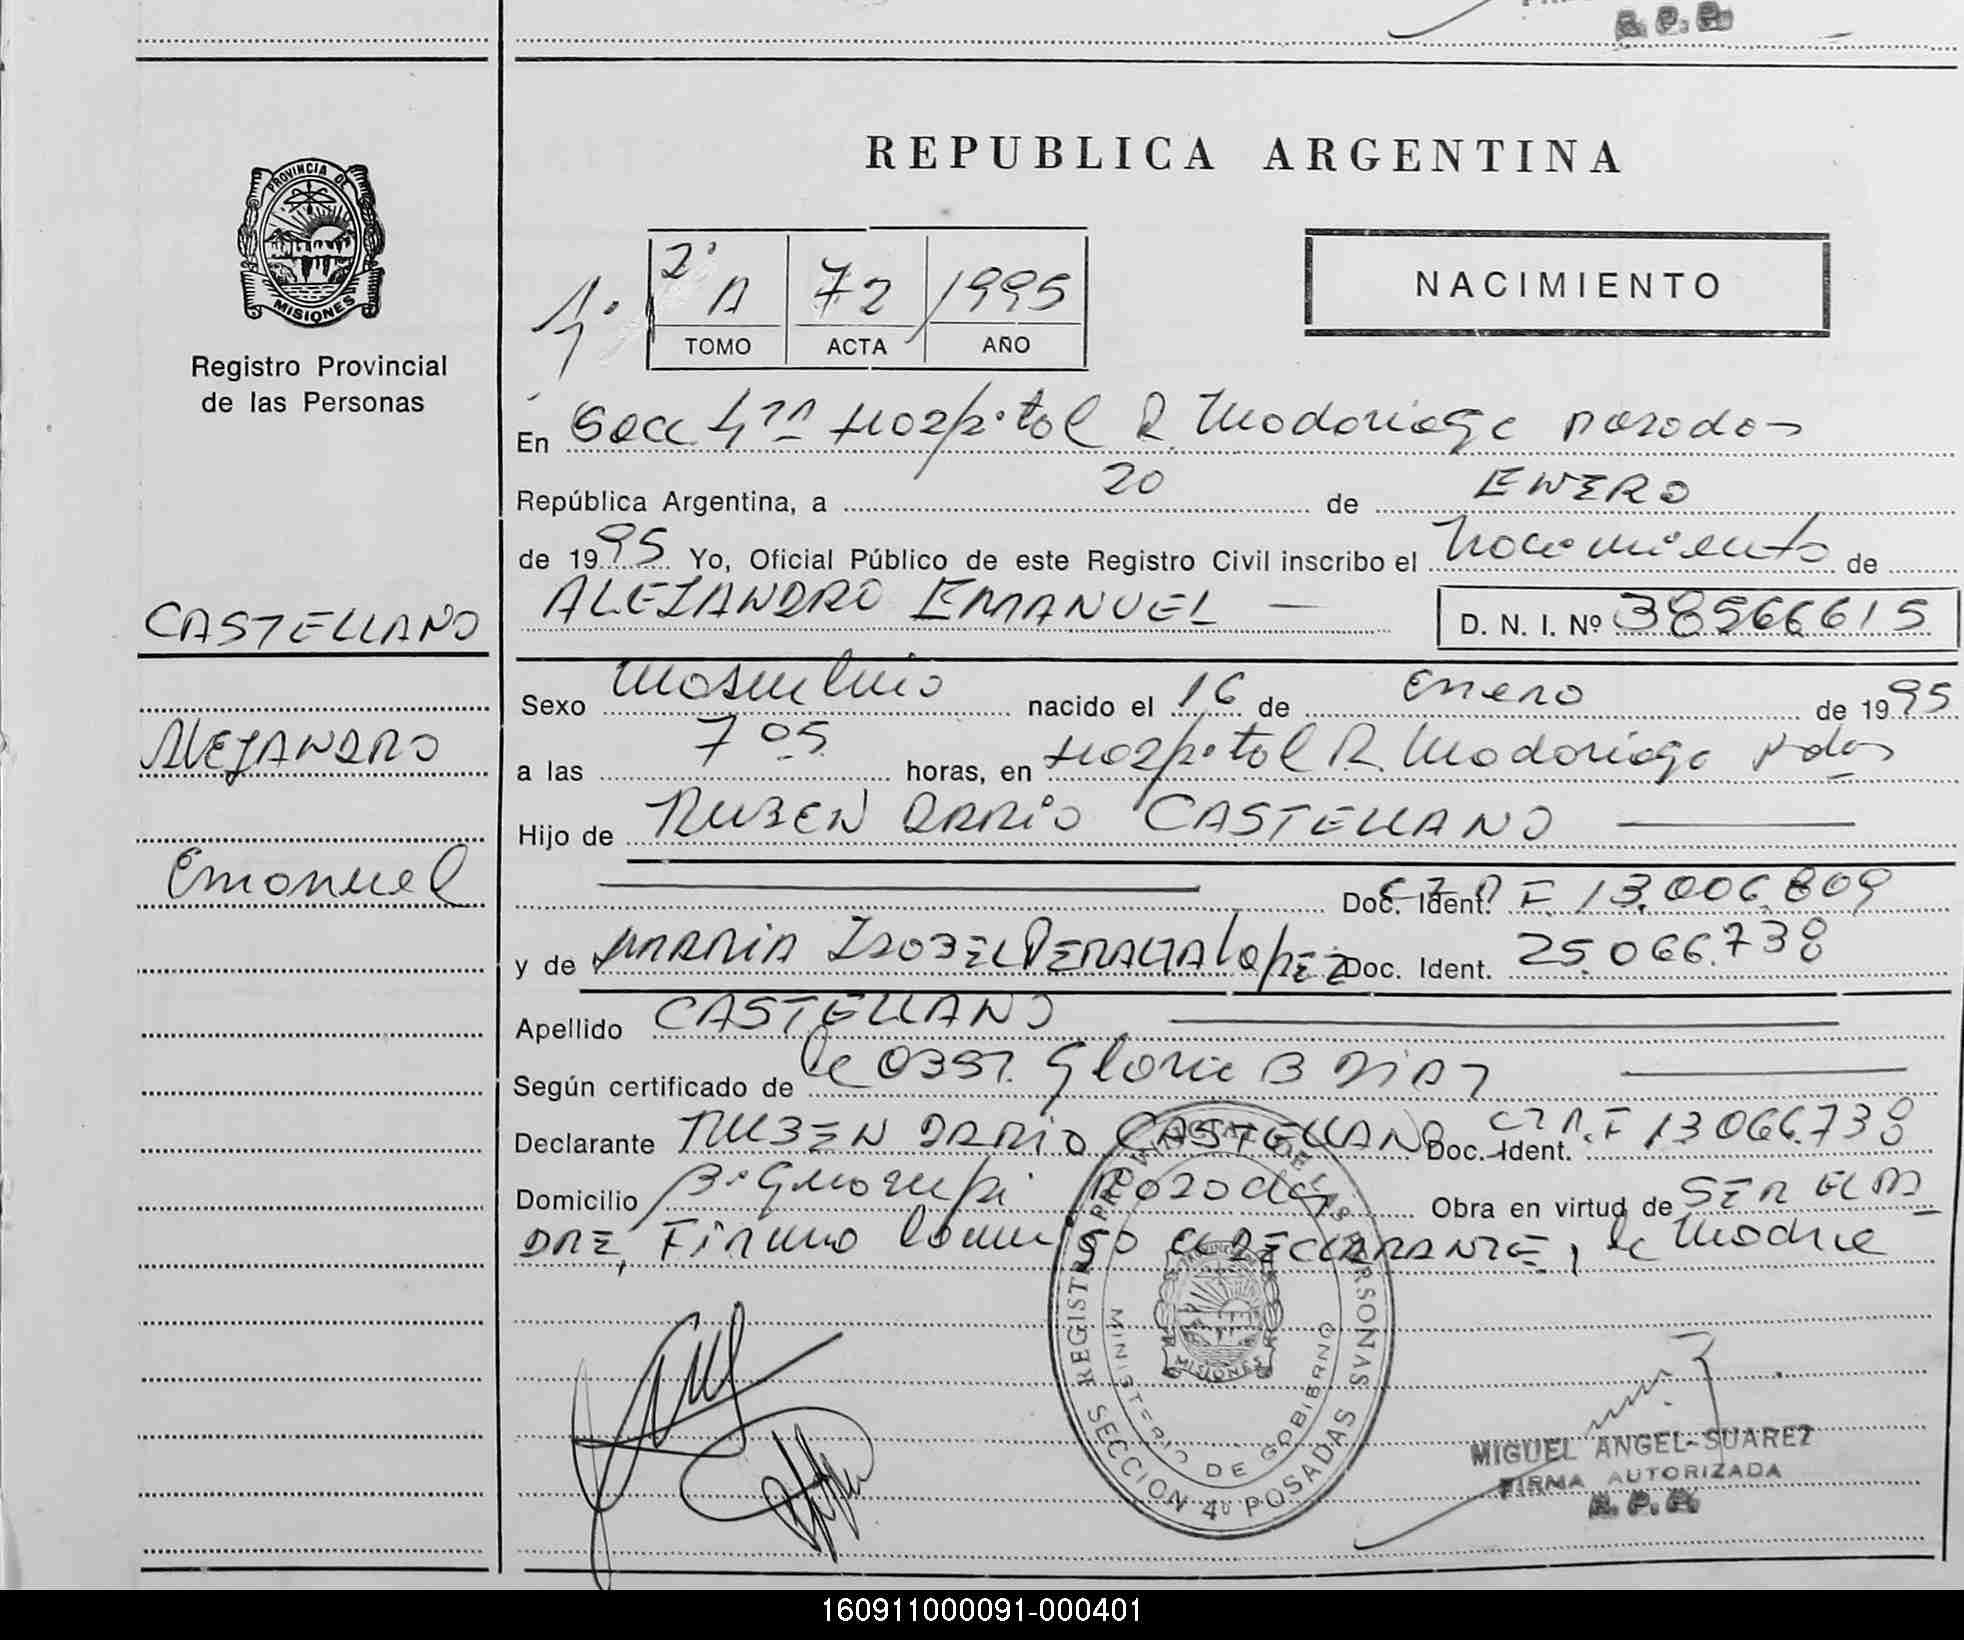 R. P. P.
REPUBLICA ARGENTINA
PROVINCIA DE
MISIONES
Registro Provincial
de las Personas
NACIMIENTO
1º 2º A 72 1995
TOMO ACTA AÑO
En Secc 4ta Hospital R. Madariaga Posadas
República Argentina, a 20 de ENERO
de 1995 Yo, Oficial Público de este Registro Civil inscribo el Nacimiento de
ALEJANDRO EMANUEL — D. N. I. Nº 38566615
CASTELLANO
Alejandro
Emanuel
Sexo Masculino nacido el 16 de enero de 1995
a las 7 05 horas, en Hospital R. Madariaga Pdas
Hijo de RUBEN DARIO CASTELLANO
Doc. Ident. F 13.006.809
y de MARIA ISABEL PERALTA LOPEZ Doc. Ident. 25.066.738
Apellido CASTELLANO
Según certificado de la OBST. Gloria B DIAZ
Declarante RUBEN DARIO CASTELLANO Doc. Ident. F 13066.738
Domicilio Bº Posadas Obra en virtud de SER EL PA
DRE, Firman conmigo el DECLARANTE, la Madre
REGISTRO PROVINCIAL DE LAS PERSONAS
MINISTERIO DE GOBIERNO
MISIONES
SECCION 4º POSADAS
MIGUEL ANGEL SUAREZ
FIRMA AUTORIZADA
R. P. P.
160911000091-000401